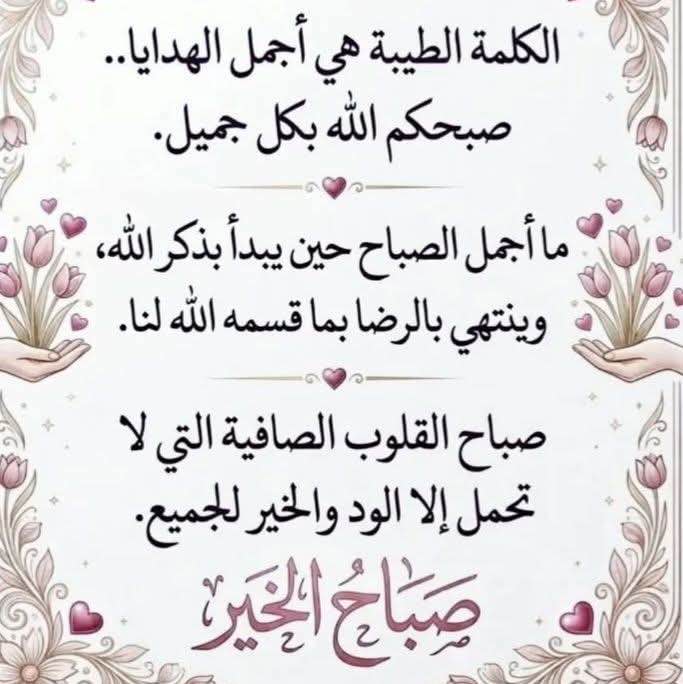 الكلمة الطيبة هي أجمل الهدايا..
صبحكم الله بكل جميل.
ما أجمل الصباح حين يبدأ بذكر الله،
وينتهي بالرضا بما قسمه الله لنا.
صباح القلوب الصافية التي لا
تحمل إلا الود والخير للجميع.
صَبَاحُ الخَير